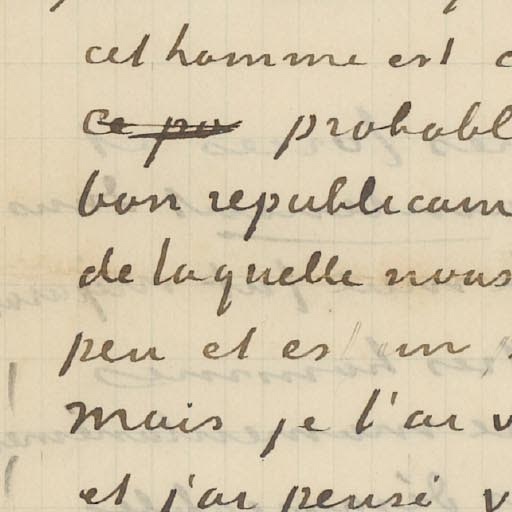 cet homme est c
ce po probabl
bon republicain
de laquelle nous
peu et es un
Mais je l'ai v
et j'ai pensé v